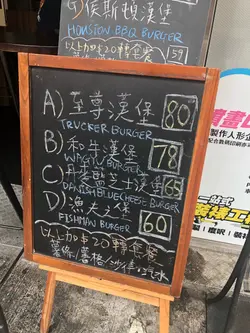 G) 侯斯頓漢堡
HOUSTON BBQ BURGER
以上加$20轉套餐
59
A) 至尊漢堡 80
TRUCKER BURGER
B) 和牛漢堡 78
WAGYU BURGER
C) 丹麥藍芝士漢堡 65
DANISH BLUE CHEESE BURGER
D) 漁夫之堡 60
FISHMAN BURGER
以上加$20轉套餐
薯條/薯格/沙律+汽水
製作人形
一站式
裝修工